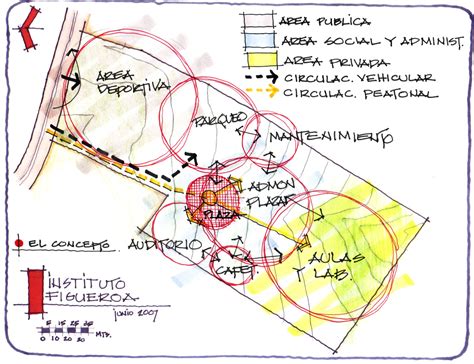 AREA PUBLICA
AREA SOCIAL Y ADMINIST.
AREA PRIVADA
CIRCULAC. VEHICULAR
CIRCULAC. PEATONAL
AREA
DEPORTIVA
PARQUEO
MANTENIMIENTO
ADMON
PLAZA
AUDITORIO
CAFET.
AULAS
Y LAB.
EL CONCEPTO
INSTITUTO
FIGUEROA
JUNIO 2007
5 15 25 35
0 10 20 20
MTS.